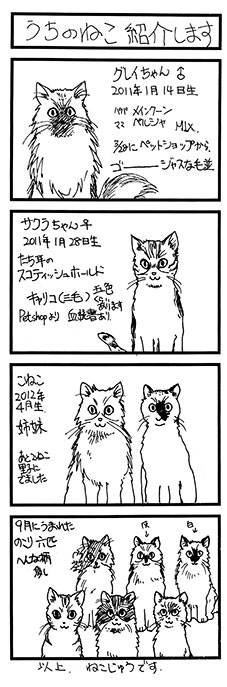 うちのねこ 紹介します
グレイちゃん ♂
2011年1月14日生
パパ メインクーン
ママ ペルシャ MIX.
ペットショップから
ゴージャスな毛並
サクラちゃん ♀
2011年1月28日生
たち耳の
スコティッシュホールド
キャリコ(三毛) 五色
ぐらいあります
Petshopより 血統書あり
こねこ
2012年
4月生.
姉妹
おとうねこ
野に
でました
9月にうまれた
のこり 六匹
へんな柄
多し
灰
白
以上. ねこじゅうです.